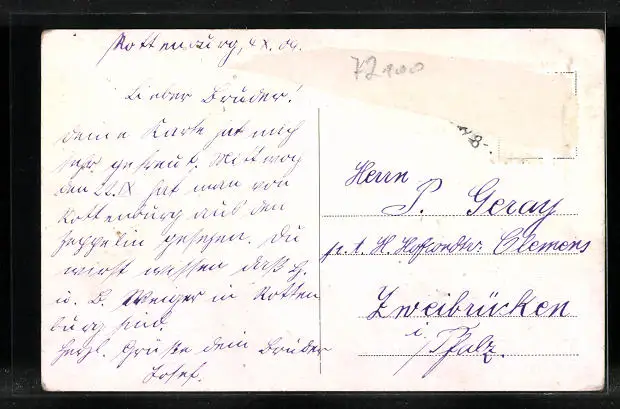 Rottenburg, 4.X.09.
Lieber Bruder!
Deine Karte hat mich
sehr gefreut. Mittwog
den 22.IX hat man von
Rottenburg aus den
Zeppelin gesehen. Du
wirst wissen daß H.
u. B. Weiger in Rotten
burg sind.
Herzl. Grüße dein Bruder
Josef.
72 100
Herrn
P. Geray
p. A. H. Clemens
Zweibrücken
i/Pfalz.